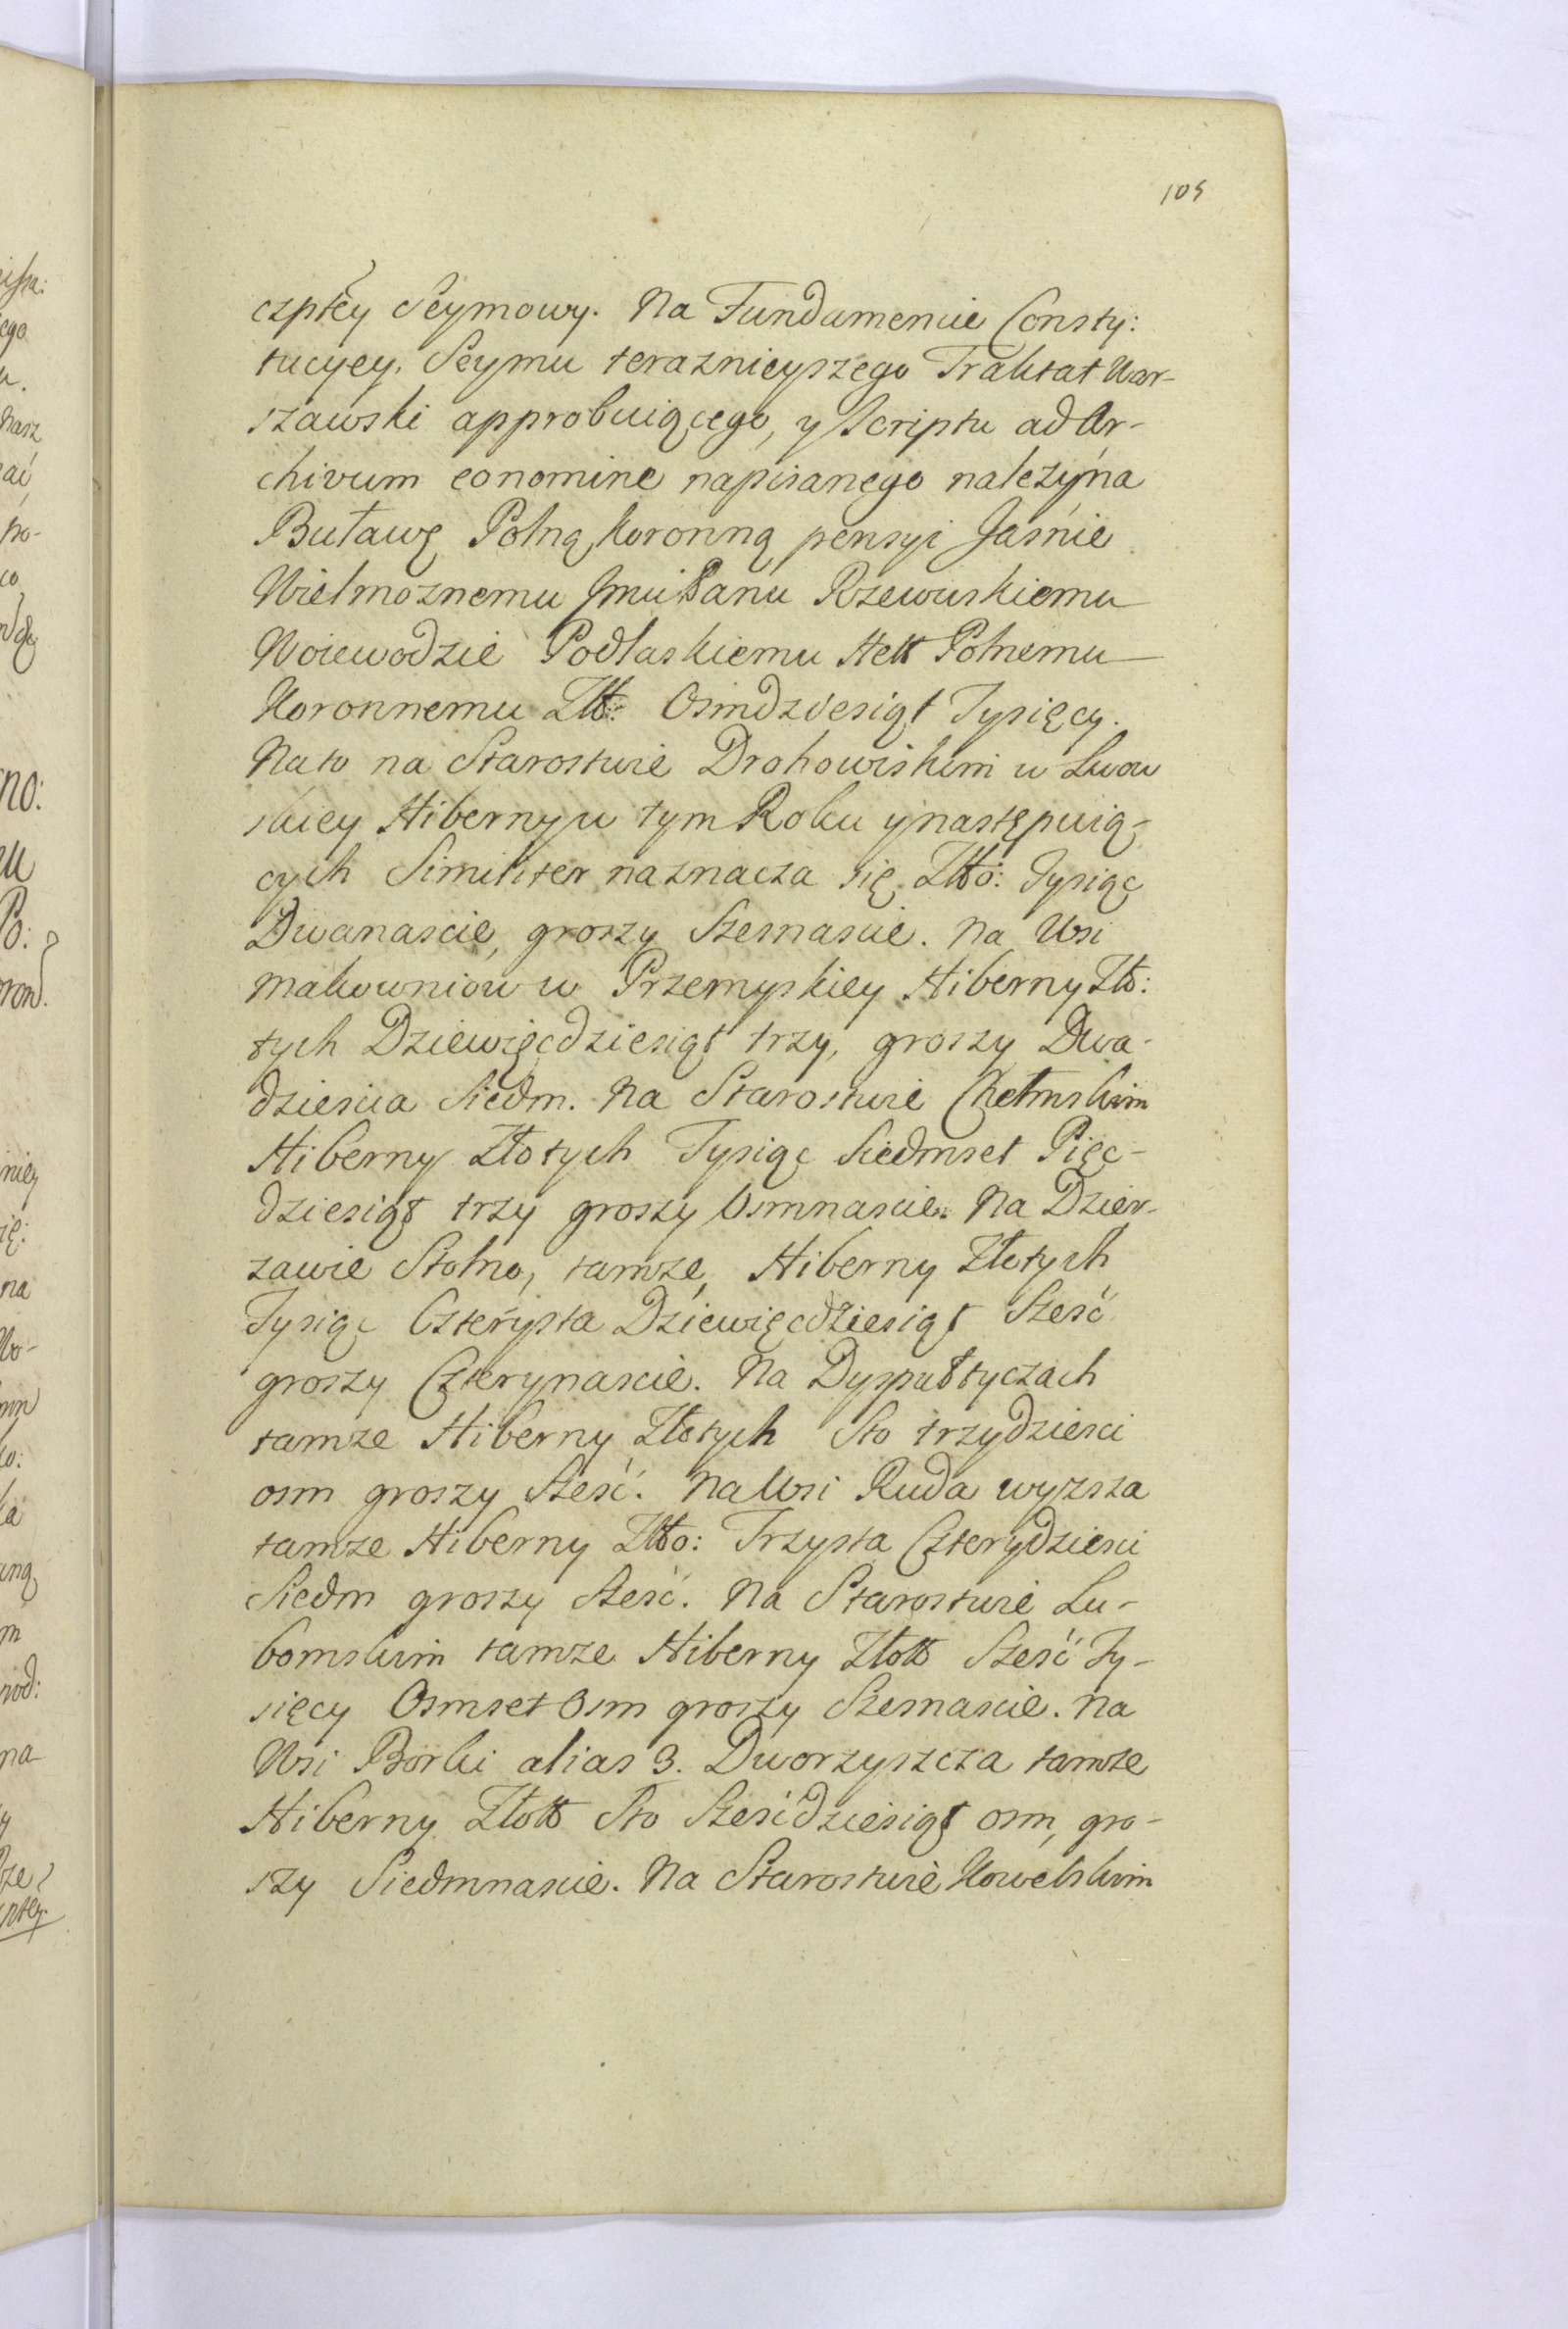 105
czpłey Seymowy. Na Fundamencie Consty:
tucyey, Seymu teraznieyszego Traktat War-
szawski approbuiącego, y Scriptu ad Ar-
chivum eonomine napisanego należy na
Buławę Polną Koronną pensyi Jaśnie
Wielmoznemu Jmći Panu Rzewuskiemu
Woiewodzie Podlaskiemu Hett Polnemu
Koronnemu Złł: Osmdziesiąt Tysięcy.
Na to na Starostwie Drohowiskim w Lwow
skiey Hiberny w tym Roku y następuią-
cych Similiter naznacza się Złło: Tysiąc
Dwanascie, groszy Szesnascie. Na Wsi
Makowniow w Przemyskiey Hiberny Zło:
tych Dziewięcdziesiąt trzy, groszy Dwa-
dziescia Siedm. Na Starostwie Chełmskim
Hiberny Złotych Tysiąc Siedmset Pięc-
dziesiąt trzy groszy Osmnascie. Na Dzier-
zawie Stolno, tamże, Hiberny Złotych
Tysiąc Czterysta Dziewięcdziesiąt Sześć
groszy Czterynascie. Na Dyspułtyczach
tamze Hiberny Złotych Sto trzydziesci
osm groszy Sześć. Na Wsi Ruda wyzsza
tamze Hiberny Złło: Trzysta Czterydziesci
Siedm groszy Sześć. Na Starostwie Lu-
bomskim tamze Hiberny Złott Sześć Ty-
sięcy Osmset Osm groszy Szesnascie. Na
Wsi Borki alias 3. Dworzyszcza tamze
Hiberny Złott Sto Sześćdziesiąt osm, gro-
szy Siedmnascie. Na Starostwie Kowelskim